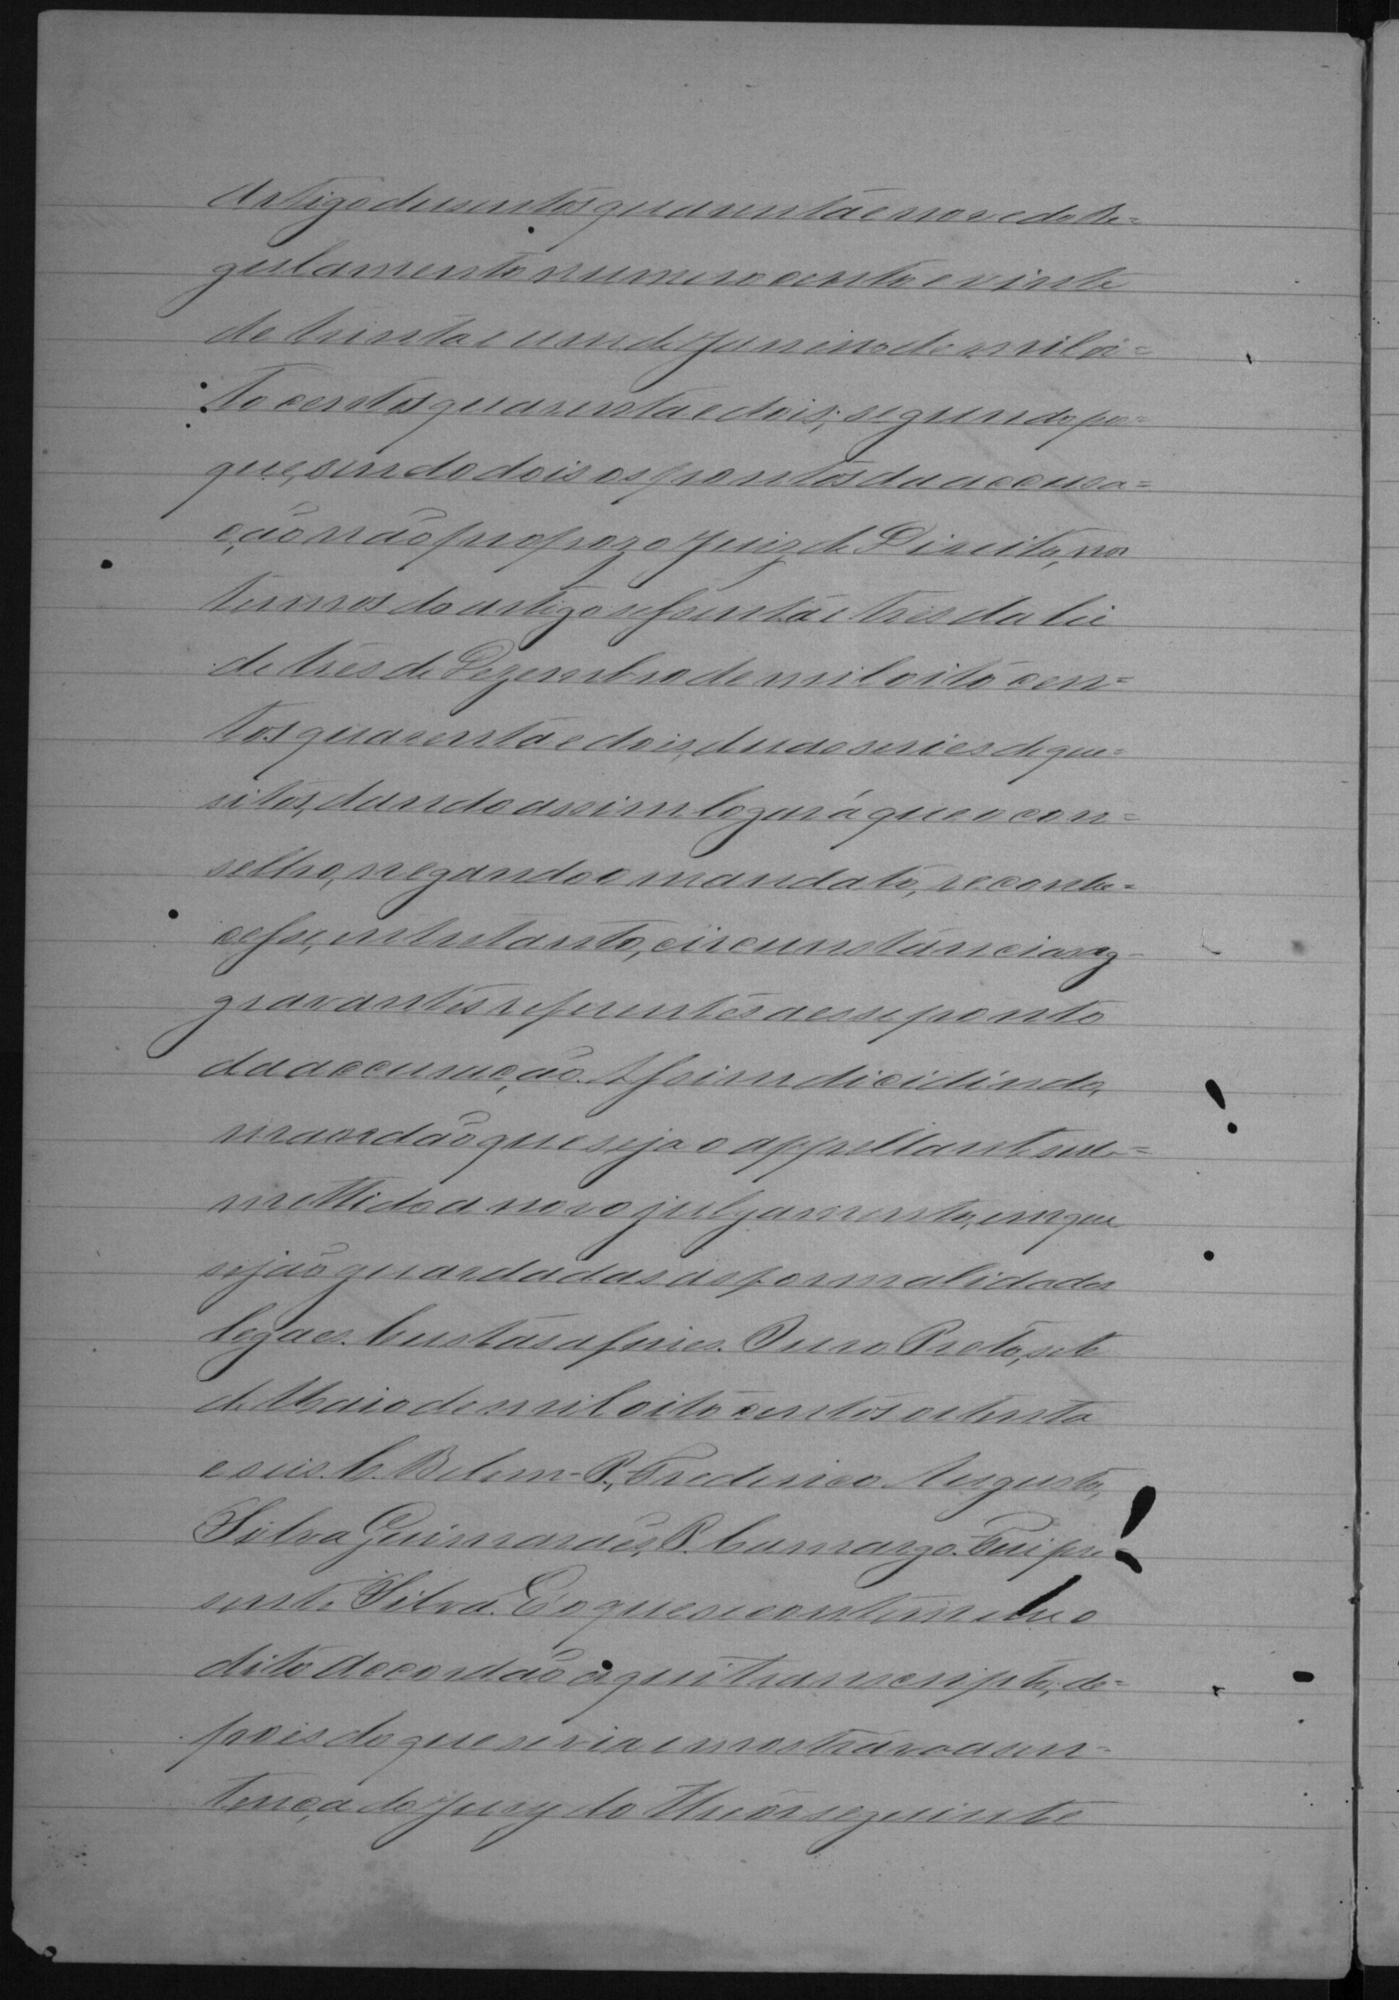 Artigo dusentos quarenta e nove do Re=
gulamento numero cento e vinte
de trinta e um de Janeiro de mil oi=
tocentos quarenta e dois; segundo por=
que, sendo dois os pontos da accusa=
ção não propoz o Juiz de Direito, nos
termos do artigo sessenta e tres da lei
de tres de Dezembro de mil oito cen=
tos quarenta e dois, duas series de que=
sitos, dando assim logar á que o con=
selho, negando o mandato, reconhe=
cesse, entretanto, circunstancias ag=
gravantes referentes a esse ponto
da accusação. Assim dicidindo,
mandão que seja o appellante sub=
mettido a novo julgamento, em que
sejão guardadas as formalidades
legaes. Custas afinal. Ouro Preto, sete
de Maio de mil oito centos oitenta
e seis. C. Belem - P., Frederico Augusto,
Silva Guimarães, P. Camargo. Fui pre=
sente Silva. E o que se continha no
dito accordão aqui transcripto, de=
pois do que se via e mostrava a sen=
tença do Jury do theôr seguinte